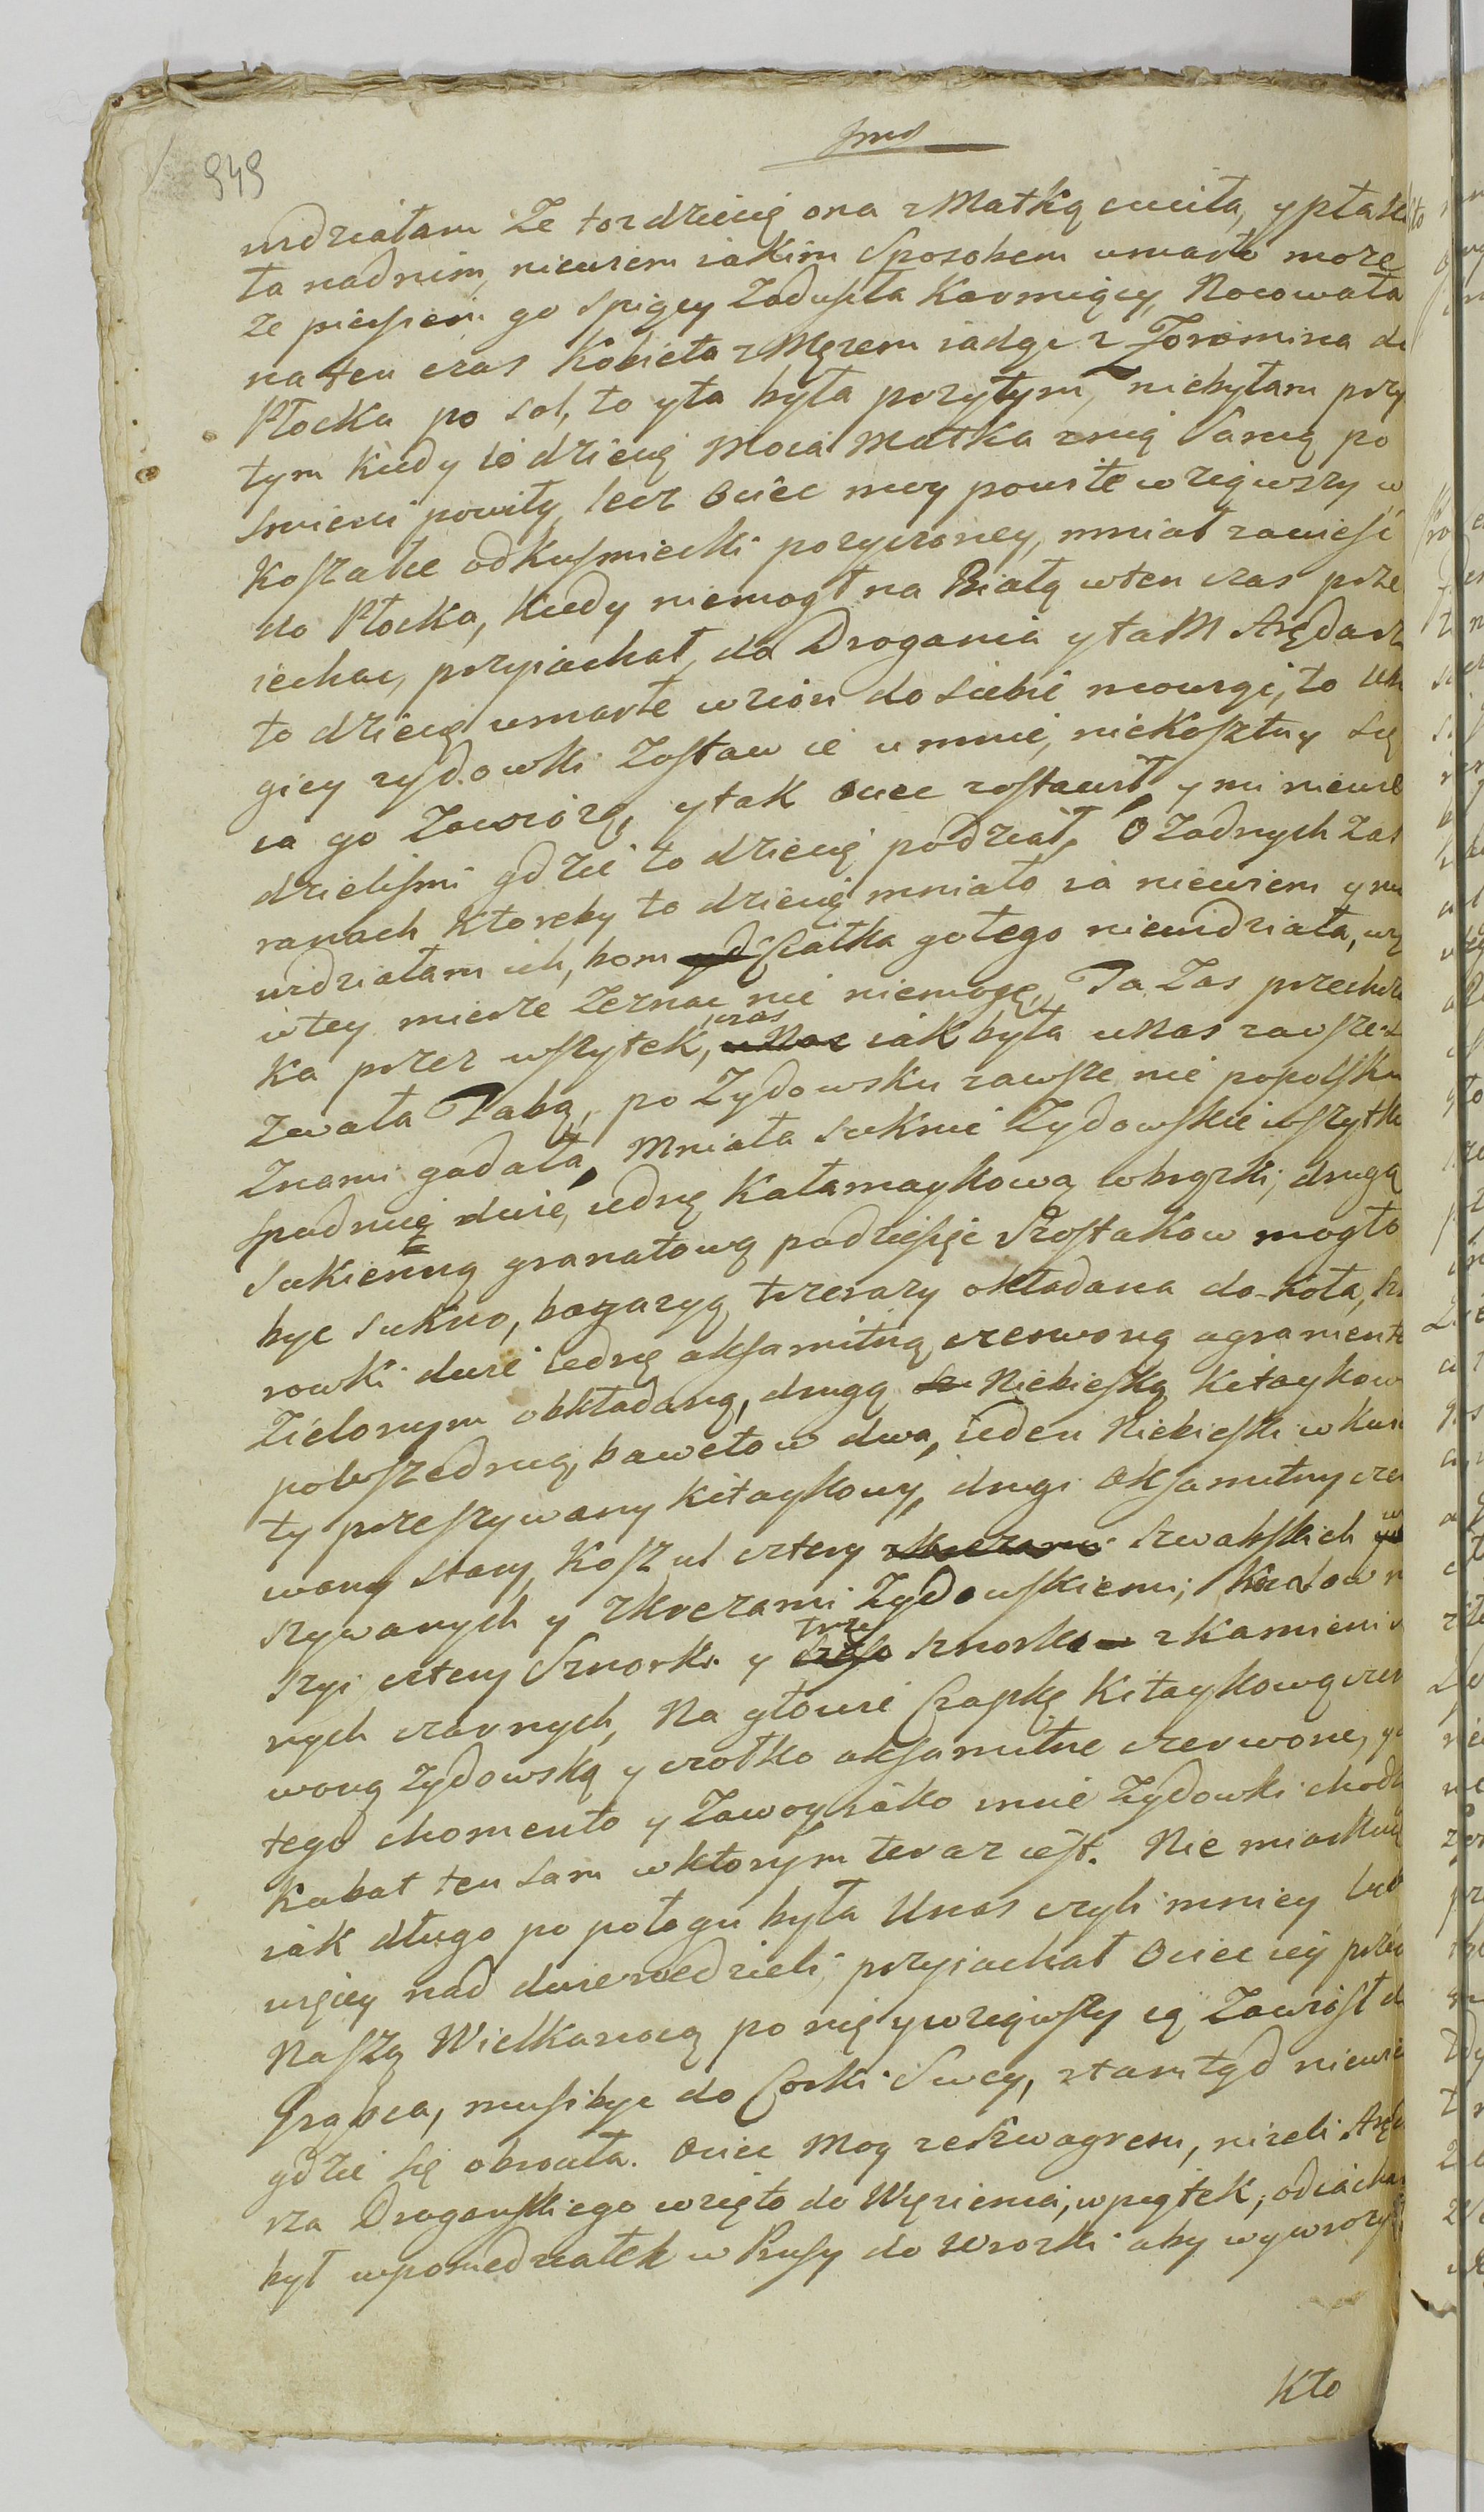 949
widziałam Ze toz dziecię ona z Matką cuciła, y płaka
ła nad nim, niewiem iakim Sposobem umarło moze
ze piersiem go Spiący Zadusiła Karmiący, Nocowała
na ten czas Kobieta z Męzem iadąc z Zoromina do
Płocka po sol, to y ta była przytym, niebyłam przy
tym kiedy to dziecię Moia Matka z nią Samą po
smierci powiły, lecz Ociec moy powite wziąwszy w
Koszałce od Kusmierki pozyczoney, mniał zawiesc
do Płocka, kiedy niemogł na Białą w ten czas prze
iechac, przyiachał do Drogania y taM Arędarz
to dziecię umarłe wzion do siebie mowiąc, to
giey zydowki Zostaw ie u mnie, niekosztuy się
ia go Zawiozę, y tak Ociec zostawił y mi niewie
dzielismi gdzie to dziecię podział, O Zadnych za
ranach ktoreby to dziecię mniało ia niewiem y nie
widziałam ich, bom Ciałka gołego niewidziała, wię
w tey mierze Zeznac nic niemogę, Ta Zas przechrz
Ka przez wszytek, czas iak była u Nas zawsze
Zwała Tabą, po Zydowsku zawsze nie popolsku
Znami gadała, Mniała suknie Zydowskie wszytkie
spadnic dwie, iednę Katamaykową w brązki, drugą
sukienną granatową podziesięc Szostakow mogło
byc sukno, bagazyą trzerazy okładana do koła,
rowki dwie iednę aksamitną czerwoną agramente
Zielonym obkładaną, drugą Niebieską Kitaykow
polwszednią, bawetow dwa, ieden Niebieski w kwia
ty przeszywany kitaykowy, drugi Aksamitny czer
wony stary, Koszul cztery Szwabskich
szywanych y z kryzami Zydowskiemi; Kralow
szyi cztery Sznorki y trzy sznorki z kamieni
nych czarnych, Na głowie Czapkę Kitaykową czer
woną zydowską y czołko aksamitne czerwone,
tego chomento y Zawoy iako inne Zydowki chodz
Kabat ten sam w ktorym teraz iest. Nie miarkuię
iak długo po połogu była Unas czyli mniey lub
więcey nad dwie niedzieli, przyiachał Ociec iey przed
Naszą Wielkanocą po nię y wziąwszy ią Zawiosł do
Grąbca, musi byc do Corki Swey, ztamtąd niewie
gdzie Się obroċiła. Ociec Moy ze Szwagrem, nizeli Arę
rza Droganskiego wzięto do Więzienia, w piątek, odiachał
był w poniedziałek w Prusy do Wrozki aby wywrozy
Kto